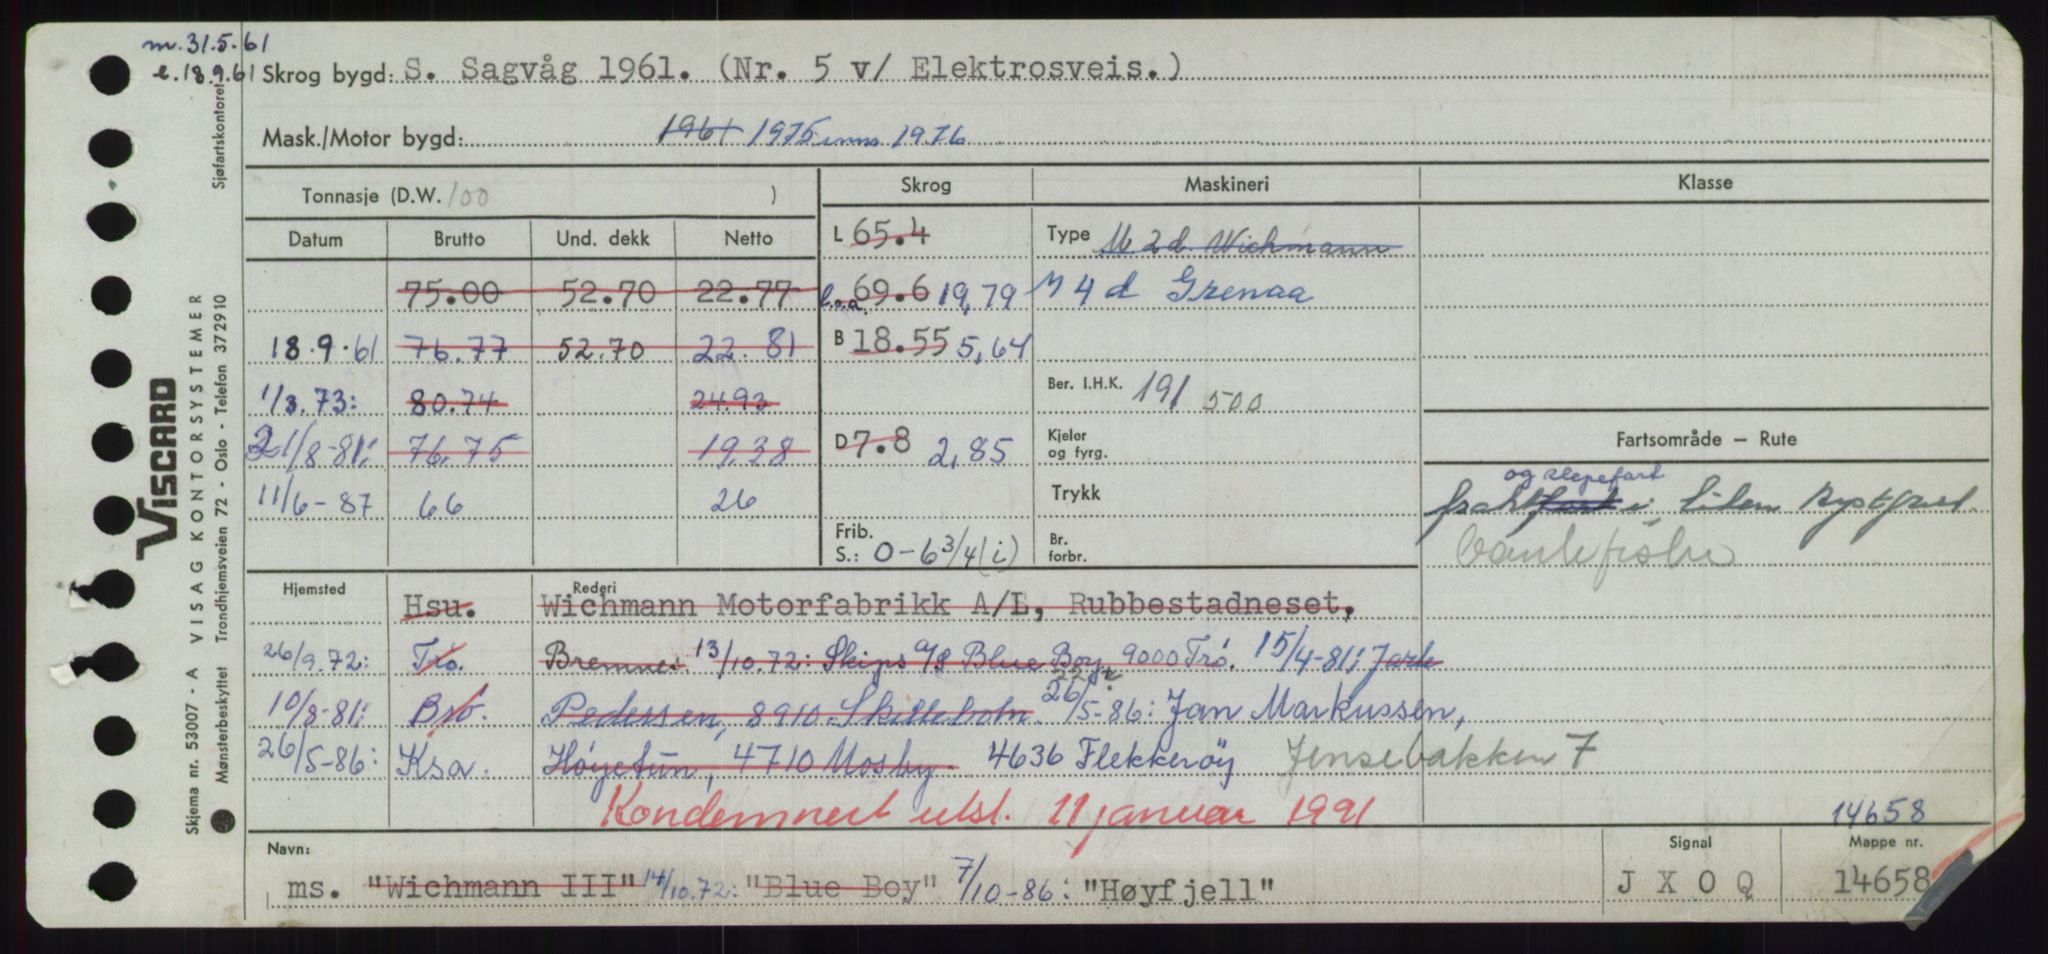 m. 31.5.61
l. 18.9.61 Skrog bygd: S. Sagvåg 1961. (Nr. 5 v/ Elektrosveis.)
Mask./Motor bygd: 1961 1975 inns 1976
Tonnasje (D.W. 100 )
Skrog Maskineri Klasse
Datum Brutto Und. dekk Netto
L 65.4 Type M 2 d. Wichmann
75.00 52.70 22.77 l.o.a. 69.6 19,79 M 4 d Grenaa
18.9.61 76.77 52.70 22.81 B 18.55 5,64
1/3.73: 80.74 24.93 Ber. I.H.K. 191 500
21/8-81: 76,75 19,38 D 7.8 2,85 Kjeler og fyrg. Fartsområde — Rute
og slepefart
11/6-87 66 26 Trykk fraktfart i liten kystfart.
Frib. S.: 0-6 3/4 (i) Br. forbr. bankfiske
Hjemsted Rederi
Hsu. Wichmann Motorfabrikk A/L, Rubbestadneset,
26/9.72: Trø. Bremnes. 13/10.72: Skips a/s Blue Boy, 9000 Trø. 15/4-81: Jarle
10/8-81: Brø. Pedersen, 8910 Skillebotn. 26/5-86: Jan Markussen,
26/5-86: Ksa. Høyetun, 4710 Mosby. 4636 Flekkerøy Jensebakken 7
Kondemnert utsl. 11 januar 1991
14658
Navn: Signal Mappe nr.
ms. "Wichmann III" 14/10.72: "Blue Boy" 7/10-86: "Høyfjell" J X O Q 14658
VISCARD
Skjema nr. 53007 - A VISAG KONTORSYSTEMER
Mønsterbeskyttet Trondhjemsveien 72 - Oslo - Telefon 372910 Sjøfartskontoret